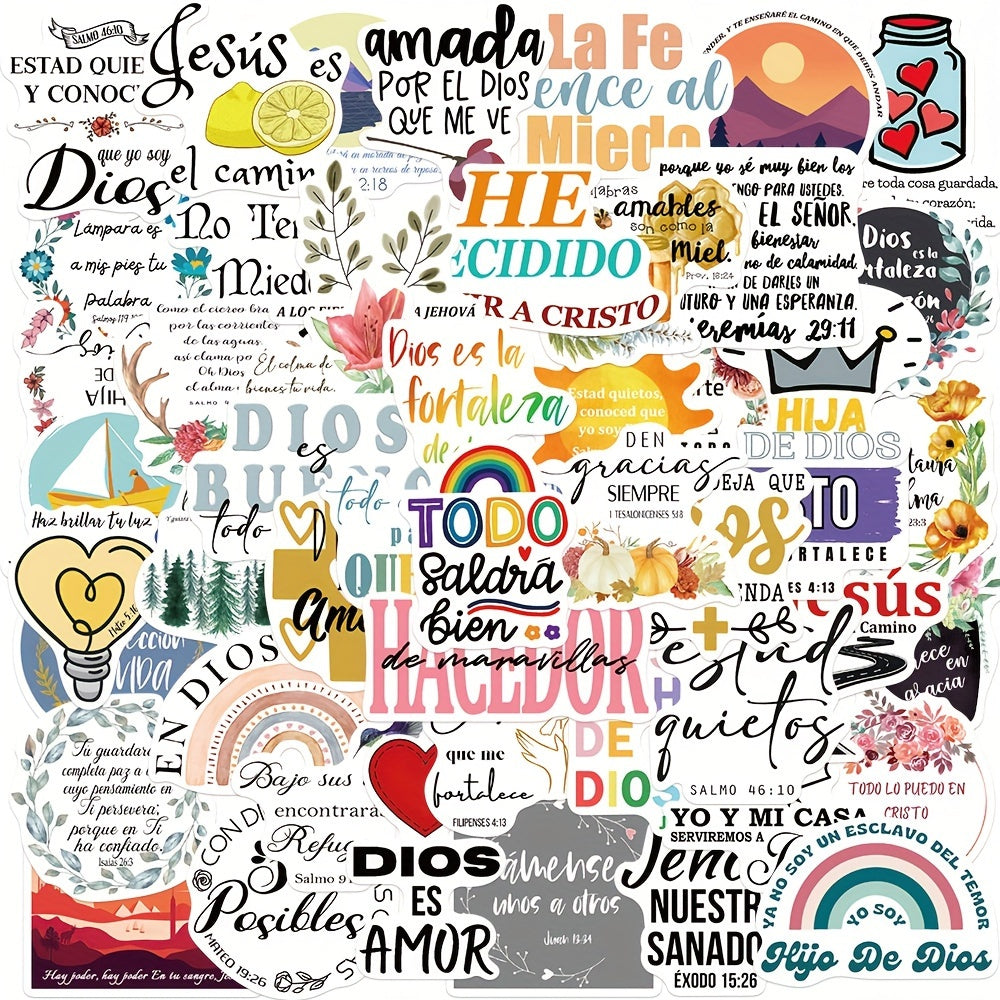 SALMO 46:10
ESTAD QUIE
Y CONOC
que yo soy
Dios
Jesús es
el camin
amada
POR EL DIOS
QUE ME VE
2:18
La Fe
ence al
Miedo
NDER, Y TE ENSEÑARÉ EL CAMINO EN QUE DEBES ANDAR
re toda cosa guardada,
corazón;
vida.
Lámpara es
a mis pies tu
Palabra
No Te
Mied
HE
ECIDIDO
R A CRISTO
A JEHOVÁ
labras
amables
son como la
Miel.
Prov. 16:24
porque yo sé muy bien los
NGO PARA USTEDES,
EL SEÑOR,
bienestar
no de calamidad,
DE DARLES UN
UTURO Y UNA ESPERANZA.
eremías 29:11
Dios
es la
rtaleza
zón
Como el ciervo bra
por las corrientes
de las aguas,
así clama po
Oh Dios
el alma
SALMO 4
El colma de
bienes tu vida.
HIJA
DE
Dios es la
fortaleza
de
Estad quietos,
conoced que
yo soy
HIJA
DE DIOS
DIOS
es
BUENO
todo
Haz brillar tu luz
Mateo 5:16
todo
TODO
saldrá
bien
DEN
gracias
SIEMPRE
1 TESALONICENSES 5:18
EJA QUE
os
TO
RTALECE
ES 4:13
NDA
taura
lma
23:3
QUE
Am
HACEDOR
de maravillas
estad
quietos
SALMO 46:10
esús
Camino
ece en
gracia
cción
VIDA
EN DIOS
Tú guardará
completa paz a
cuyo pensamiento en
Ti persevera;
porque en Ti
ha confiado.
Isaías 26:3
Bajo sus
encontrara
Refug
Salmo 91
que me
fortalece
FILIPENSES 4:13
DE
DIO
YO Y MI CASA
SERVIREMOS A
TODO LO PUEDO EN
CRISTO
Hay poder, hay poder En tu sangre, Je
CON DI
Posibles
MATEO 19:26
DIOS
ES
AMOR
ámense
unos a otros
Juan 13:34
NUESTR
SANADO
ÉXODO 15:26
YA NO SOY UN ESCLAVO DEL TEMOR
YO SOY
Hijo De Dios